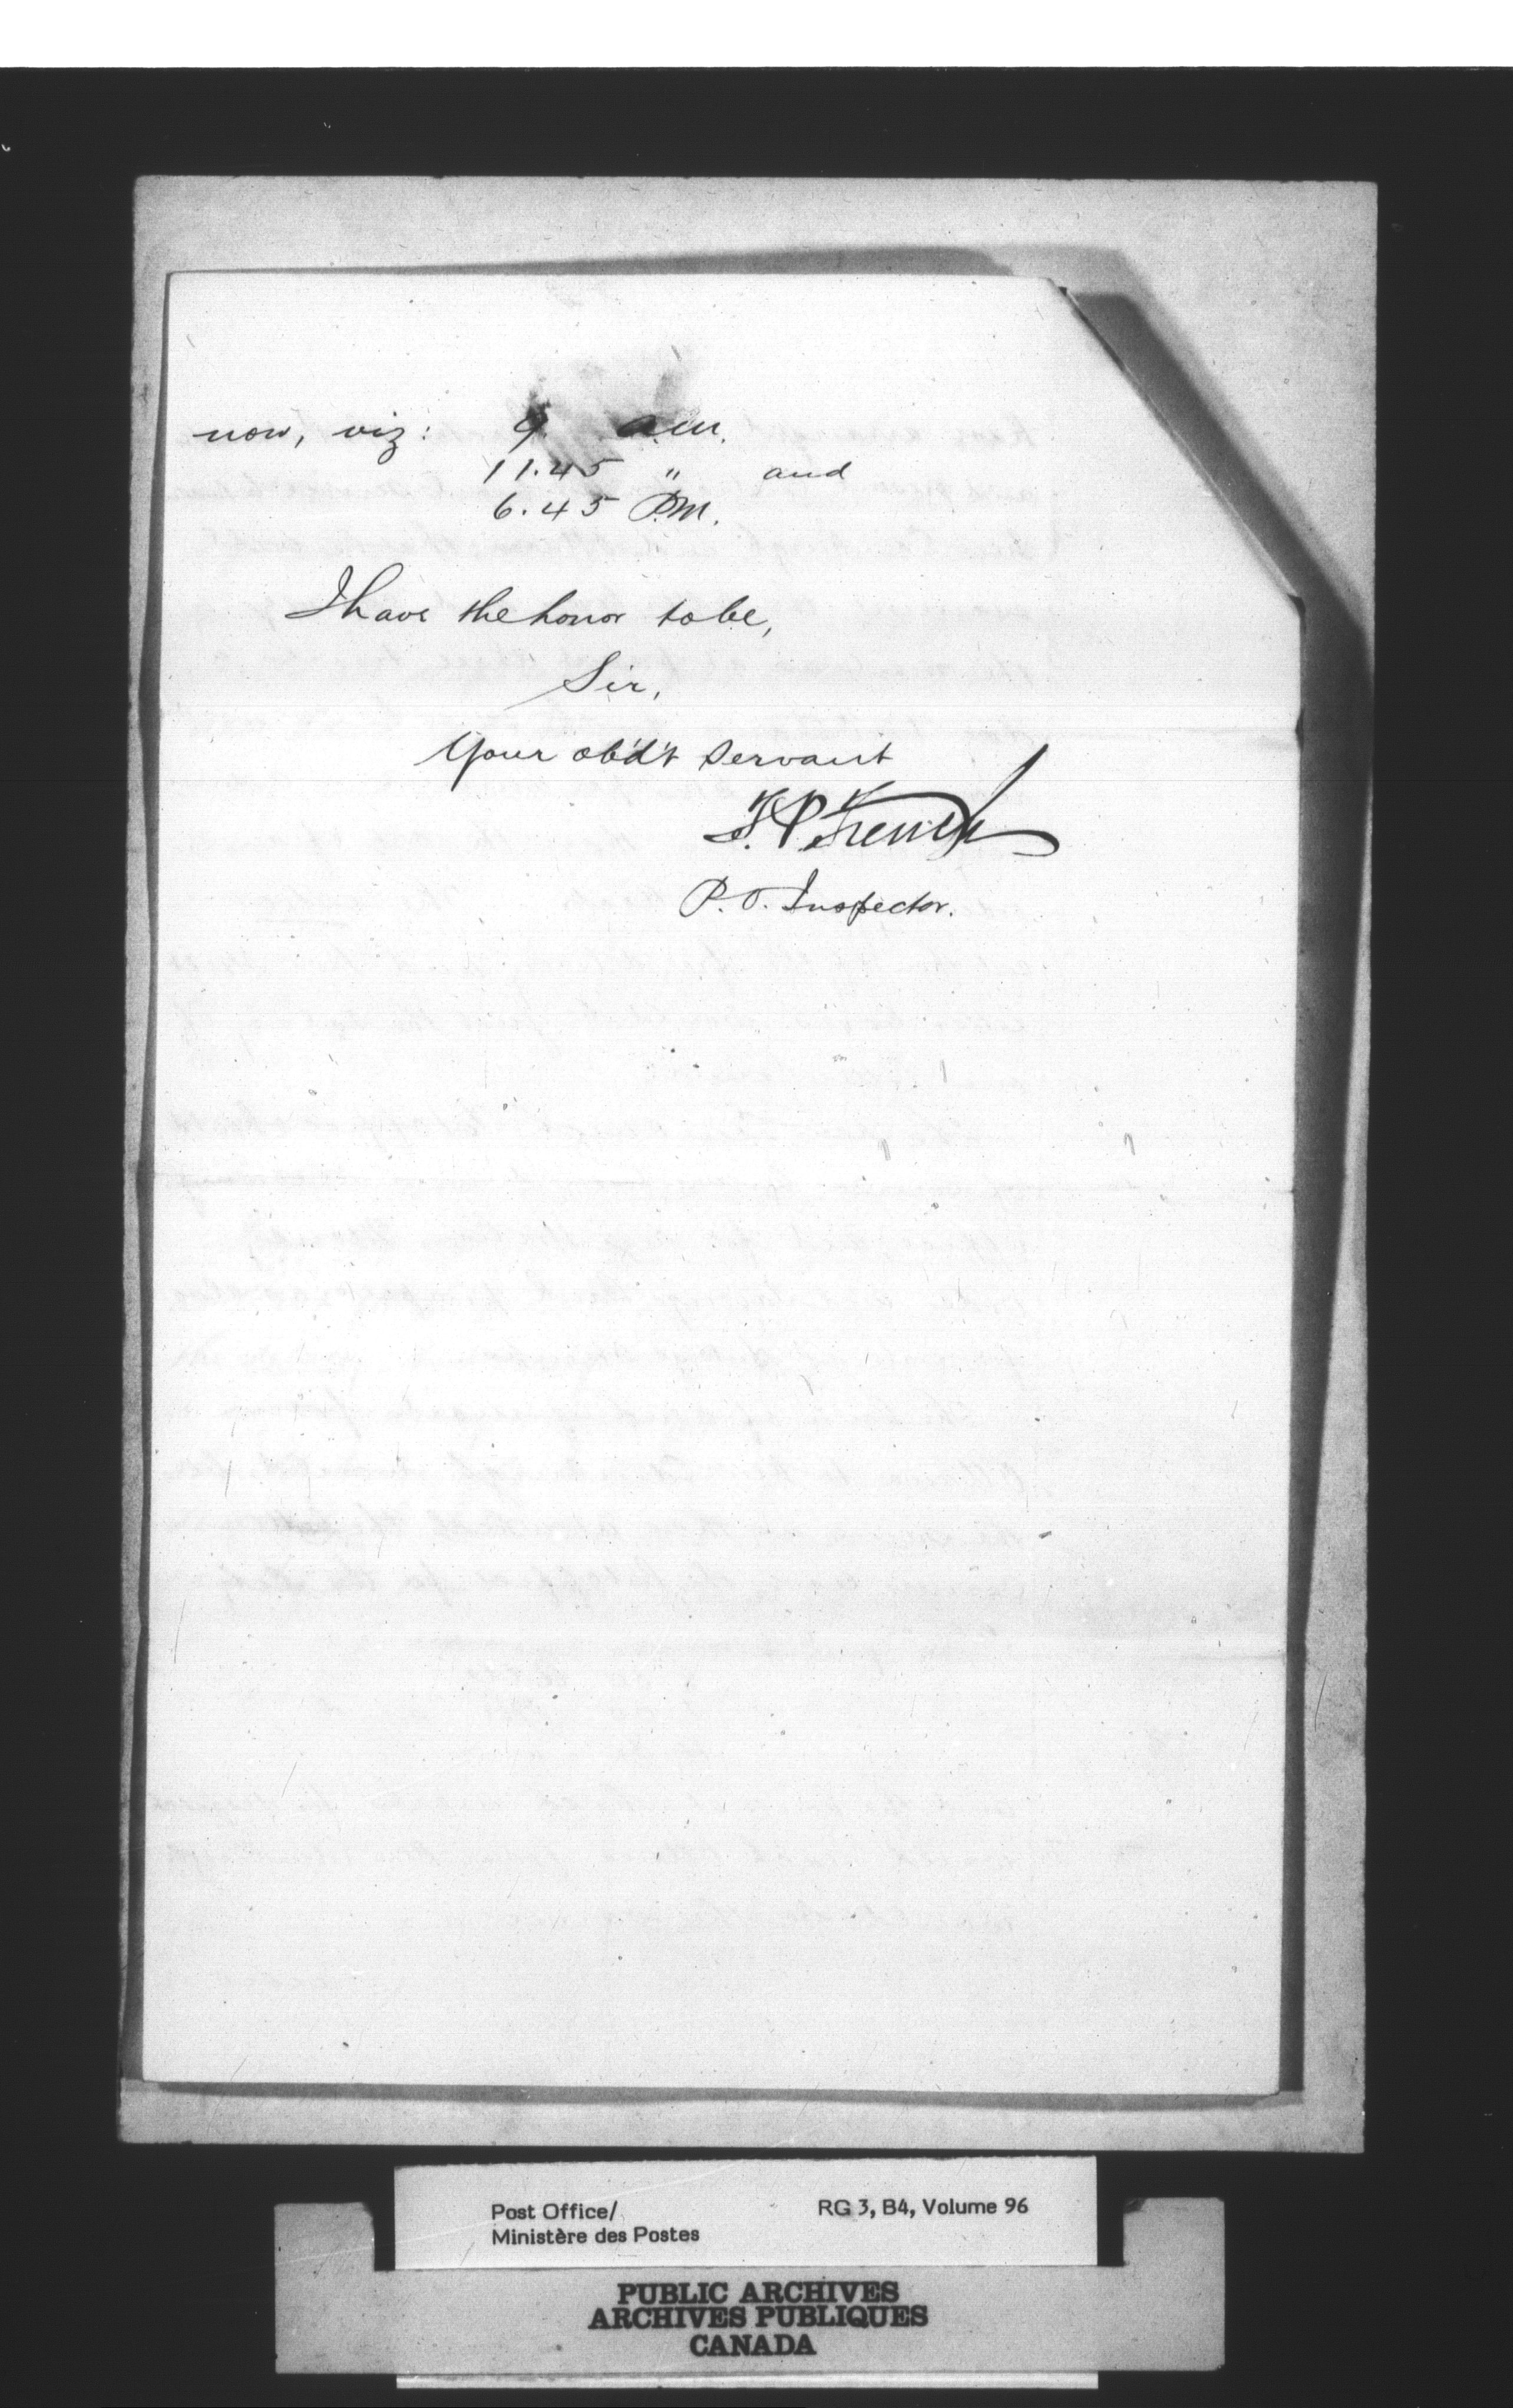 now, viz: 9 a.m.
11.45 " and
6.45 P.M.
I have the honor to be,
Sir,
Your obd't servant
T.P. French
P.O. Inspector.
Post Office/
Ministère des Postes
RG 3, B4, Volume 96
PUBLIC ARCHIVES
ARCHIVES PUBLIQUES
CANADA